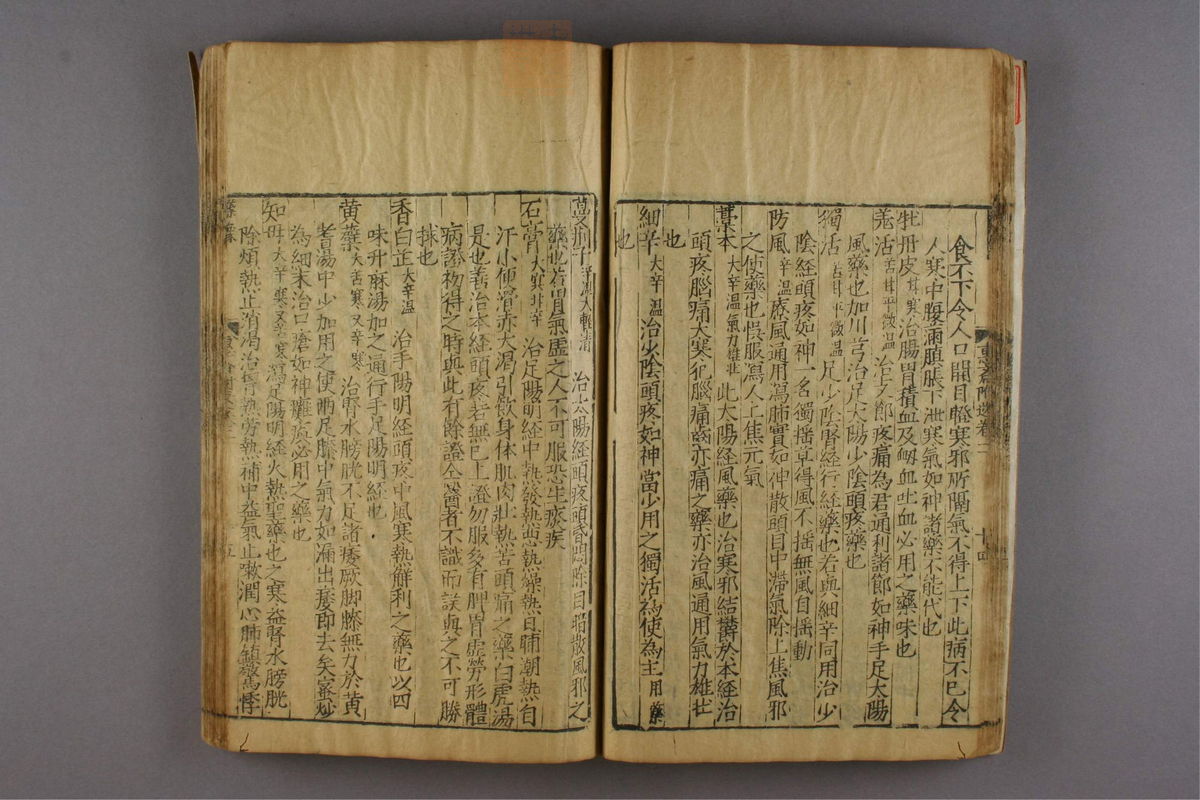 食不下令人口開目瞪寒邪所隔氣不得上下此病不已令
人寒中腹滿䐜脹下泄寒氣如神諸藥不能代也
牡丹皮苦甘寒治腸胃積血及衂血吐血必用之藥味也
羌活苦甘平微温治上部疼痛為君通利諸節如神手足太陽
風藥也如川芎治足太陽少陰頭疼藥也
獨活苦甘平微温足少陰腎経行経藥也若與細辛同用治少
陰経頭疼如神一名獨揺草得風不揺無風自揺動
防風辛温療風通用瀉肺實如仲散頭目中滯氣除上焦風邪
之使藥也悞服瀉人上焦元氣
藁本大辛温氣力雄壮此太陽経風藥也治寒邪結欝於本経治
頭疼腦痛大寒犯腦痛齒亦痛之藥亦治風通用氣力雄壮
也
細辛大辛温治少陰頭疼如神當少用之獨活為使為主用藥
也
蔓荆子治太陽経頭疼頭昏悶除目暗散風邪之
藥也若胃氣虛之人不可服恐生痰疾
石膏大寒甘辛治足陽明経中熱發熱悪熱燥熱日晡潮熱自
汗小便滑赤大渇引飲身体肌肉壮熱苦頭痛之藥白虎湯
是也善治本経頭疼若無已上證勿服多有脾胃虚勞形體
病證初得之時與此有餘證全醫者不識而誤與之不可勝
捄也
香白芷大辛温治手陽明経頭疼中風寒熱解利之藥也以四
味升麻湯加之通行手足陽明経也
黄蘗大苦寒又辛寒治腎水膀胱不足諸痿厥脚膝無力於黄
耆湯中少加用之使兩足膝中氣力如漏出痿即去矣蜜炒
為細末治口瘡如神癱瘓必用之藥也
知母大辛寒又辛寒瀉足陽明経火熱聖藥也之寒益腎水膀胱
除煩熱止消渇治骨熱勞熱補中益氣止嗽潤心肺鎮驚悸